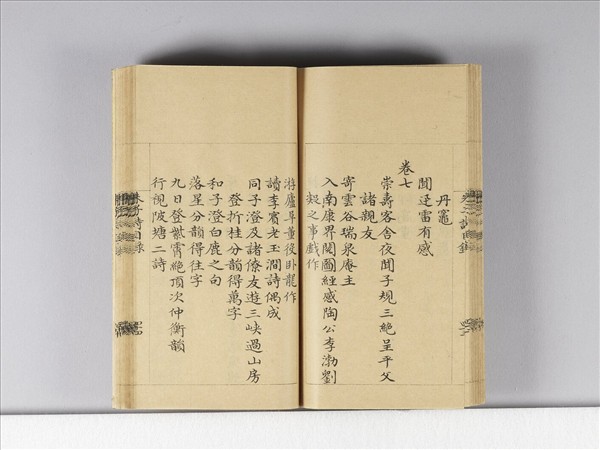 丹竈
聞迅雷有感
卷七
崇壽客舍夜聞子規三絶呈平父
諸親友
寄雲谷瑞泉庵主
入南康界閱圖經感陶公李渤劉
凝之事戲作
游廬阜董役卧龍作
讀李賓老玉澗詩偶成
同子澄及諸僚友遊三峽過山房
登折桂分韻得萬字
和子澄白鹿之句
落星分韻得往字
九日登紫霄絶頂次仲衡韻
行視陂塘二詩